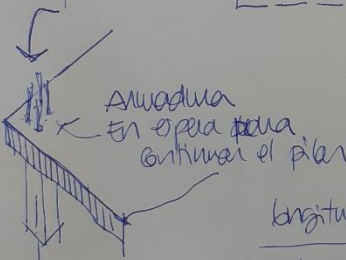 Armadura
En espera para
continuar el pilar
longitu